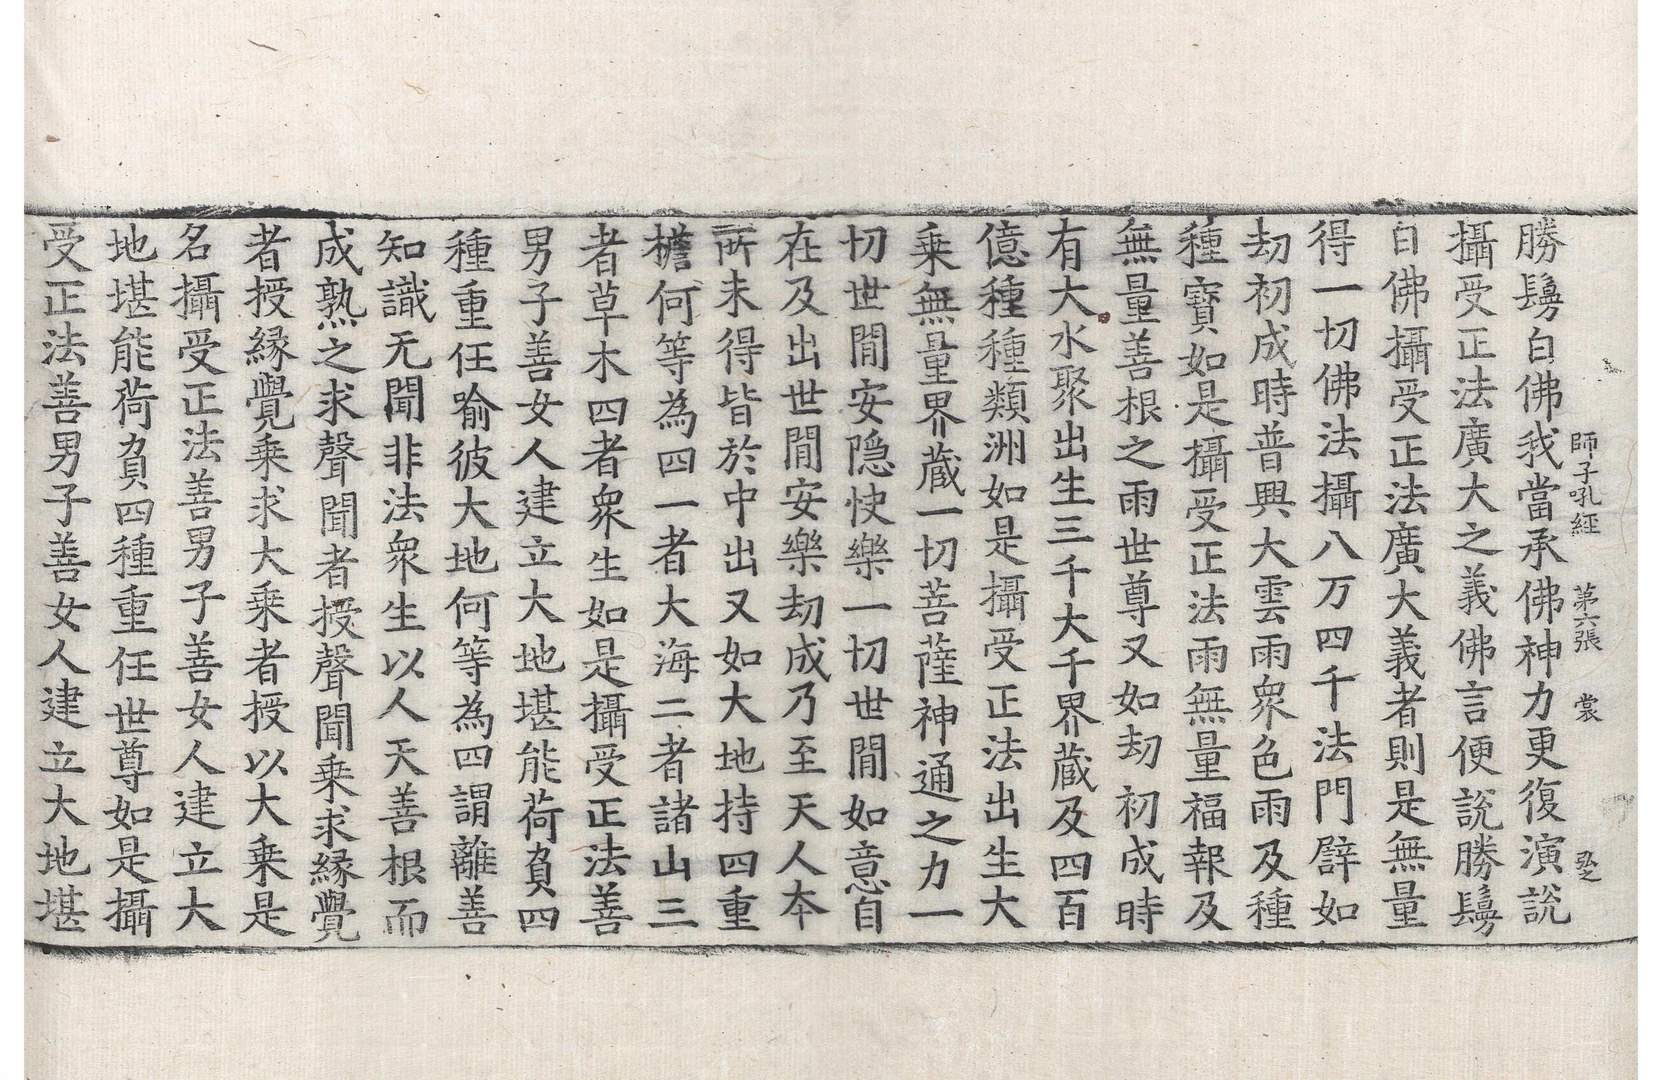 師子吼經 第六張 裳
勝鬘白佛我當承佛神力更復演說
攝受正法廣大之義佛言便說勝鬘
白佛攝受正法廣大義者則是無量
得一切佛法攝八万四千法門辟如
劫初成時普興大雲雨衆色雨及種
種寶如是攝受正法雨無量福報及
無量善根之雨世尊又如劫初成時
有大水聚出生三千大千界藏及四百
億種種類洲如是攝受正法出生大
乘無量界藏一切菩薩神通之力一
切世間安隐快樂一切世間如意自
在及出世間安樂劫成乃至天人本
所未得皆於中出又如大地持四重
檐何等為四一者大海二者諸山三
者草木四者衆生如是攝受正法善
男子善女人建立大地堪能荷負四
種重任喻彼大地何等為四謂離善
知識无聞非法衆生以人天善根而
成熟之求聲聞者授聲聞乘求緣覺
者授緣覺乘求大乘者授以大乘是
名攝受正法善男子善女人建立大
地堪能荷負四種重任世尊如是攝
受正法善男子善女人建立大地堪